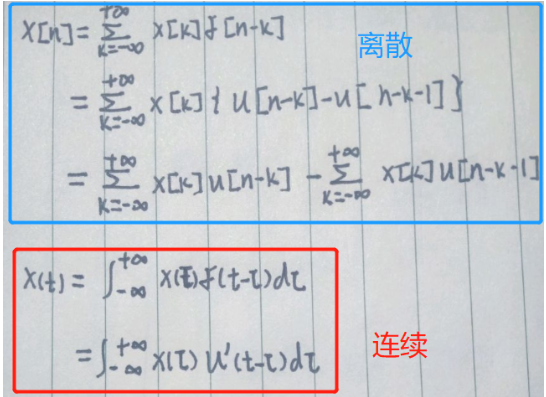 x[n]=∑_{k=-∞}^{+∞} x[k]δ[n-k]
离散
=∑_{k=-∞}^{+∞} x[k]{u[n-k]-u[n-k-1]}
=∑_{k=-∞}^{+∞} x[k]u[n-k] -∑_{k=-∞}^{+∞} x[k]u[n-k-1]
x(t)=∫_{-∞}^{+∞} x(τ)δ(t-τ)dτ
=∫_{-∞}^{+∞} x(τ)u'(t-τ)dτ
连续